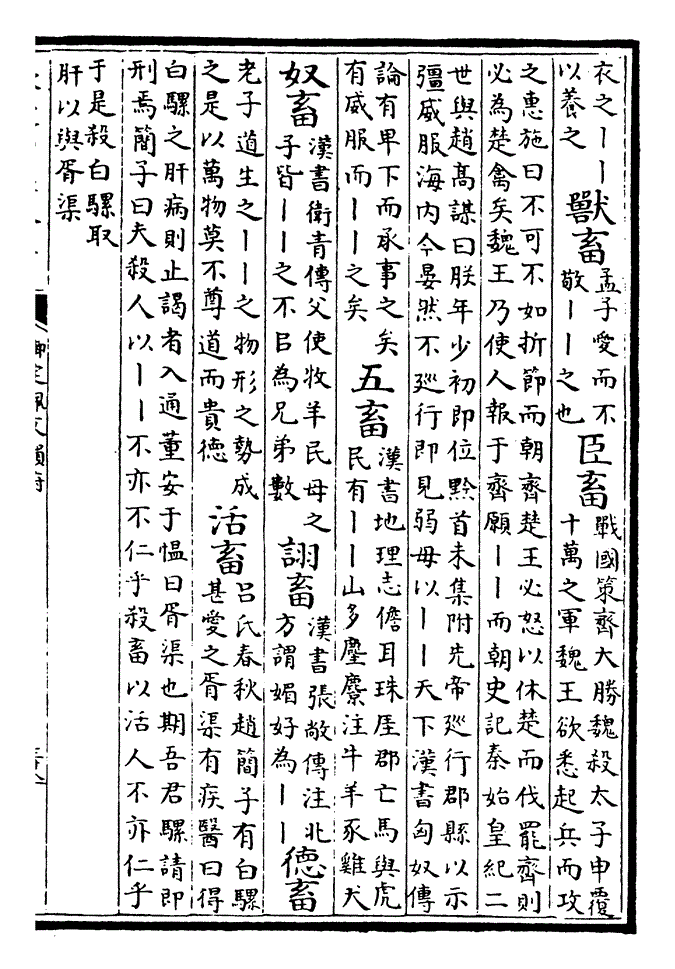 衣之丨丨
以養之
獸畜
孟子愛而不
敬丨丨之也
臣畜
戰國策齊大勝魏殺太子申覆
十萬之軍魏王欲悉起兵而攻
之惠施曰不可不如折節而朝齊楚王必怒以休楚而伐罷齊則
必為楚禽矣魏王乃使人報于齊願丨丨而朝史記秦始皇紀二
世與趙高謀曰朕年少初即位黔首未集附先帝廵行郡縣以示
彊威服海内今晏然不廵行即見弱毋以丨丨天下漢書匈奴傳
論有卑下而承事之矣
有威服而丨丨之矣
五畜
漢書地理志儋耳珠厓郡亡馬與虎
民有丨丨山多麈麖注牛羊豕雞犬
奴畜
漢書衛青傳父使牧羊民母之
子皆丨丨之不㠯為兄弟數
詡畜
漢書張敞傳注北
方謂媚好為丨丨
德畜
老子道生之丨丨之物形之勢成
之是以萬物莫不尊道而貴德
活畜
呂氏春秋趙簡子有白騾
甚愛之胥渠有疾醫曰得
白騾之肝病則止謁者入通董安于愠曰胥渠也期吾君騾請即
刑焉簡子曰夫殺人以丨丨不亦不仁乎殺畜以活人不亦仁乎
于是殺白騾取
肝以與胥渠
御定佩文韻府